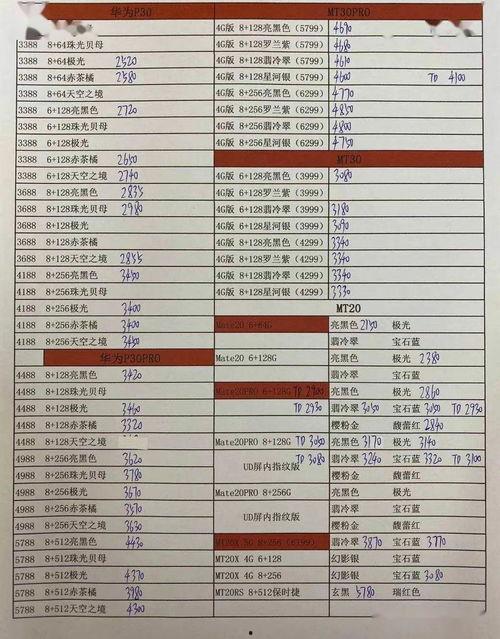 华为P30
8+64亮黑色
3388 8+64珠光贝母
3388 8+64极光 2520
3388 8+64赤茶橘 2580
3388 8+64天空之境
3388 6+128亮黑色 2720
3388 6+128珠光贝母
3388 6+128极光
3388 6+128赤茶橘 2650
3388 6+128天空之境 2740
3688 8+128亮黑色 2835
3688 8+128珠光贝母 2980
3688 8+128极光
3688 8+128赤茶橘
3688 8+128天空之境 2855
4188 8+256亮黑色 3450
4188 8+256珠光贝母
4188 8+256极光 3400
4188 8+256赤茶橘 3400
4188 8+256天空之境 3450
华为P30PRO
4488 8+128亮黑色 3420
4488 8+128珠光贝母
4488 8+128极光 3460
4488 8+128赤茶橘 3320
4488 8+128天空之境
4988 8+256亮黑色 3620
4988 8+256珠光贝母 3780
4988 8+256极光 3670
4988 8+256赤茶橘 3570
4988 8+256天空之境 3630
5788 8+512亮黑色 4430
5788 8+512珠光贝母
5788 8+512极光 4370
5788 8+512赤茶橘 3980
5788 8+512天空之境 4300
MT30PRO
4G版 8+128亮黑色(5799) 4690
4G版 8+128罗兰紫(5799) 4680
4G版 8+128翡冷翠(5799) 4610
4G版 8+128星河银(5799) 4600 TD 4100
4G版 8+256亮黑色(6299) 4770
4G版 8+256罗兰紫(6299) 4850
4G版 8+256翡冷翠(6299) 4800
4G版 8+256星河银(6299) 4750
MT30
4G版 6+128亮黑色(3999) 3080
4G版 6+128罗兰紫(3999)
4G版 6+128翡冷翠(3999) 3180
4G版 6+128星河银(3999) 3090
4G版 8+128亮黑色(4299) 3340
4G版 8+128罗兰紫(4299) 3340
4G版 8+128翡冷翠(4299) 3340
4G版 8+128星河银(4299) 3330
MT20
Mate20 6+64G 亮黑色 2150 极光
翡冷翠 宝石蓝
Mate20 6+128G 亮黑色 极光 2380
翡冷翠 宝石蓝
Mate20PRO 6+128G TD 2900 亮黑色 极光 2860
TD 2930 翡冷翠 3050 宝石蓝 3050 TD 2930
樱粉金 馥蕾红 2840
Mate20PRO 8+128G TD 3050 亮黑色 3170 极光 3140
UD屏内指纹版 TD 3080 翡冷翠 3240 宝石蓝 3320 TD 3100
樱粉金 馥蕾红
Mate20PRO 8+256G 亮黑色 极光
UD屏内指纹版 翡冷翠 宝石蓝
樱粉金 馥蕾红
MT20X 5G 8+256 (6399) 翡冷翠 3870 宝石蓝 3770
MT20X 4G 6+128 幻影银 宝石蓝
MT20X 4G 8+256 幻影银 宝石蓝 3080
MT20RS 8+512保时捷 玄黑 5780 瑞红色